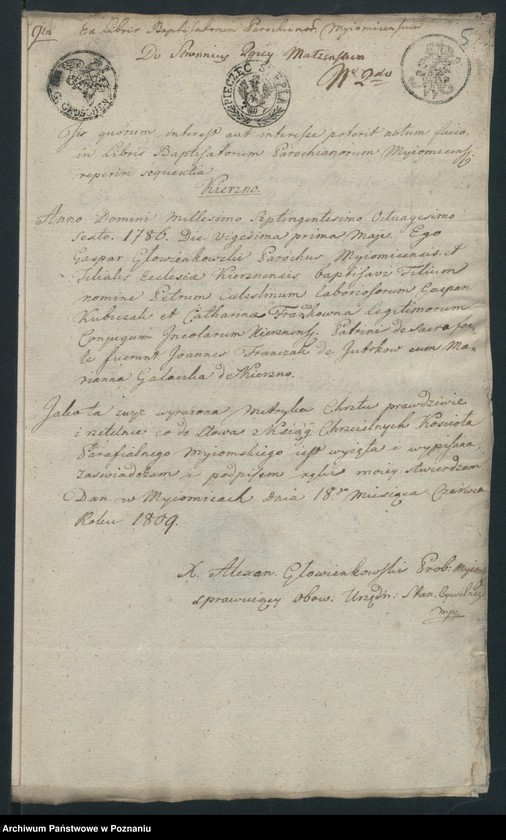 Ex Libris Baptisatorum Parochianor. Myiomicensium
5
Do Slubnicy Pary Małżeństwa
Nr 2do
G. GROSCHEN
PIECZĘĆ STĘPLA
quorum interest aut interesse poterit notum facio,
in Libris Baptisatorum Parochianorum Myiomicens.
reperiri sequentia
Kierzno.
Anno Domini Millesimo Septingentesimo Octuagesimo
Sexto. 1786. Die vigesima prima Maje. Ego
Gaspar Głowienkowski Parochus Myiomicensis et
Filialis Ecclesia Kierznensis baptisavi Filium
nomine Petrum Celestinum laboriosorum Caspari
Kubiczak et Catharina Frankowna Legitimorum
Conjugum Incolarum Kierznens. Patrini de Sacro fon-
te fuerunt Joannes Franczak de Jutrkow cum Ma-
rianna Galaczka de Kierzno.
Jako ta zwyż wyrażona Metryka Chrztu prawdziwie
i rzetelnie co do słowa z Ksiąg Chrzcielnych Kościoła
Parafialnego Myiomskiego iest wyięta i wypisana,
zaświadczam i podpisem ręki moiey stwierdzam
Dan. w Myiomicach dnia 18go Miesiąca Czerwca
Roku 1809.
X. Alexan. Głowienkowski Prob. Myiom.
sprawuiący obow. Urzędn: Stan. Cywilnego
mpp
Archiwum Państwowe w Poznaniu